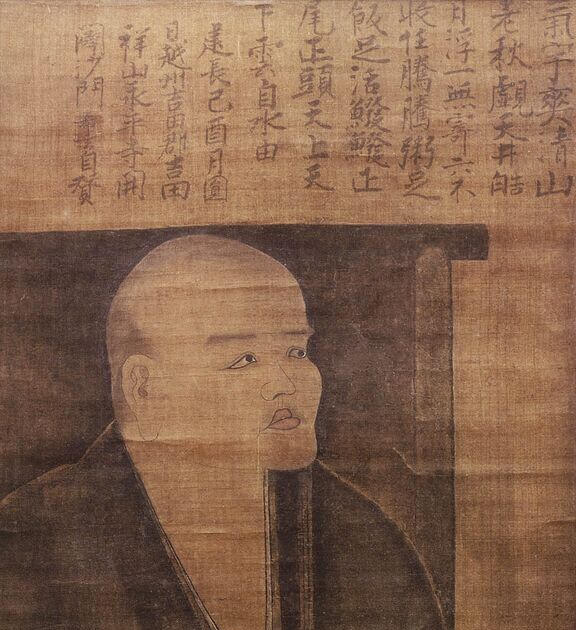 氣宇爽清山
老秋覰天井皓
月浮一無寄六不
收任騰騰粥足
飯足活鱍鱍正
尾正頭天上天
下雲自水由
建長己酉月圓
日越州吉田郡吉田
祥山永平寺開
闢沙門自賛